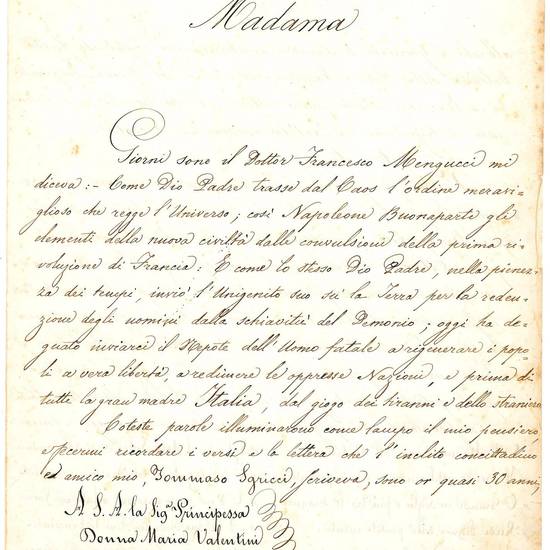 Madama
Giorni sono il Dottor Francesco Mengucci mi
diceva: - Come Dio Padre trasse dal Caos l'ordine meravi-
glioso che regge l'Universo; così Napoleone Buonaparte gli
elementi della nuova civiltà dalle convulsioni della prima ri-
voluzione di Francia: E come lo stesso Dio Padre, nella pienez-
za dei tempi, inviò l'Unigenito suo su la Terra per la reden-
zione degli uomini dalla schiavitù del Demonio; oggi ha de-
gnato inviarci il Nepote dell'Uomo fatale a rigenerare i popo-
li a vera libertà, a redimere le oppresse Nazioni, e prima di
tutte la gran madre Italia, dal giogo dei tiranni e dello straniero.
Coteste parole illuminarono come lampo il mio pensiero,
e fecermi ricordare i versi e la lettera che l'inclito concittadino
ed amico mio, Tommaso Sgricci, scriveva, sono or quasi 30 anni,
A S. A. la Sig.ra Principessa
Donna Maria Valentini